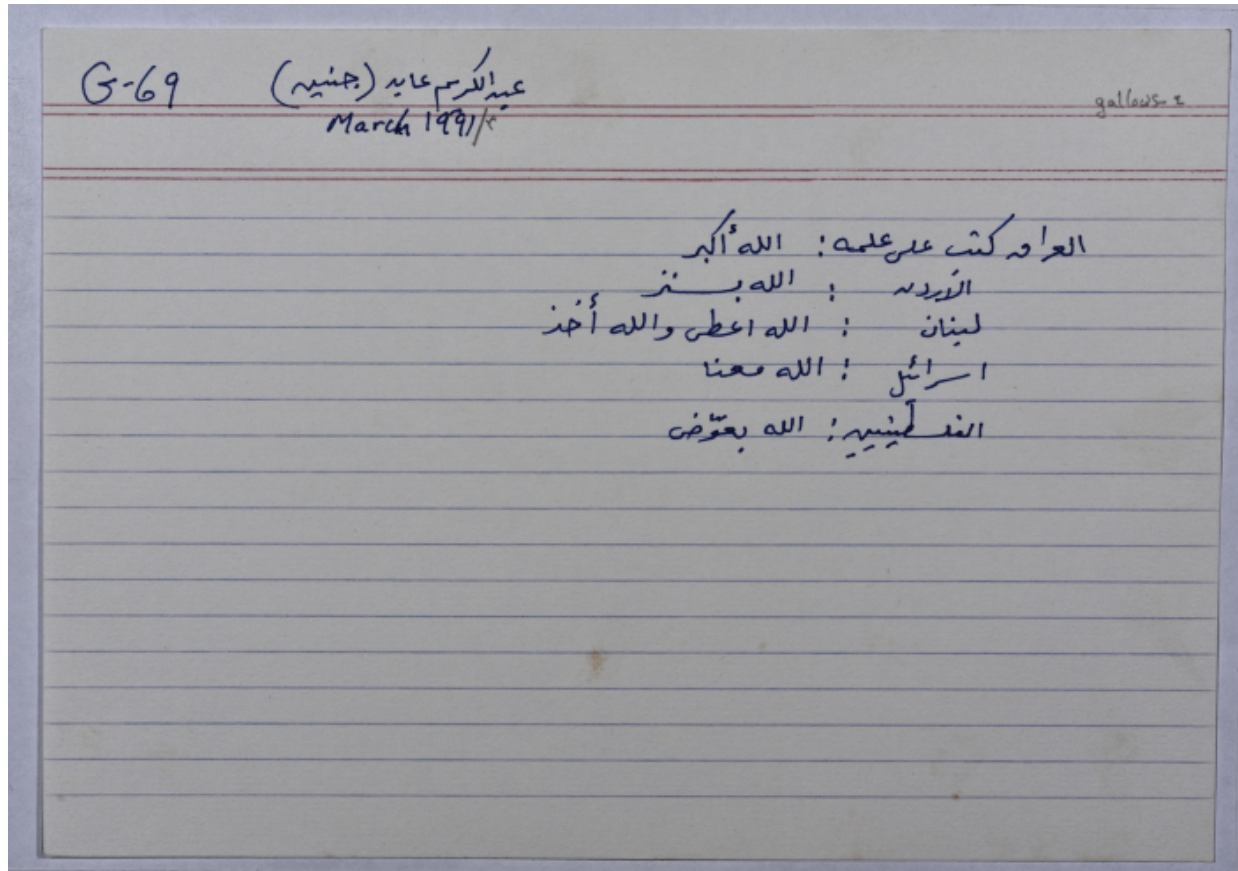 G-69 عبدالكريم عابد (جنين)
gallows
March 1991/
العراق كتب على علمه: الله أكبر
الأردن : الله يستر
لبنان : الله اعطى والله أخذ
اسرائيل : الله معنا
الفلسطينيين: الله يعوّض